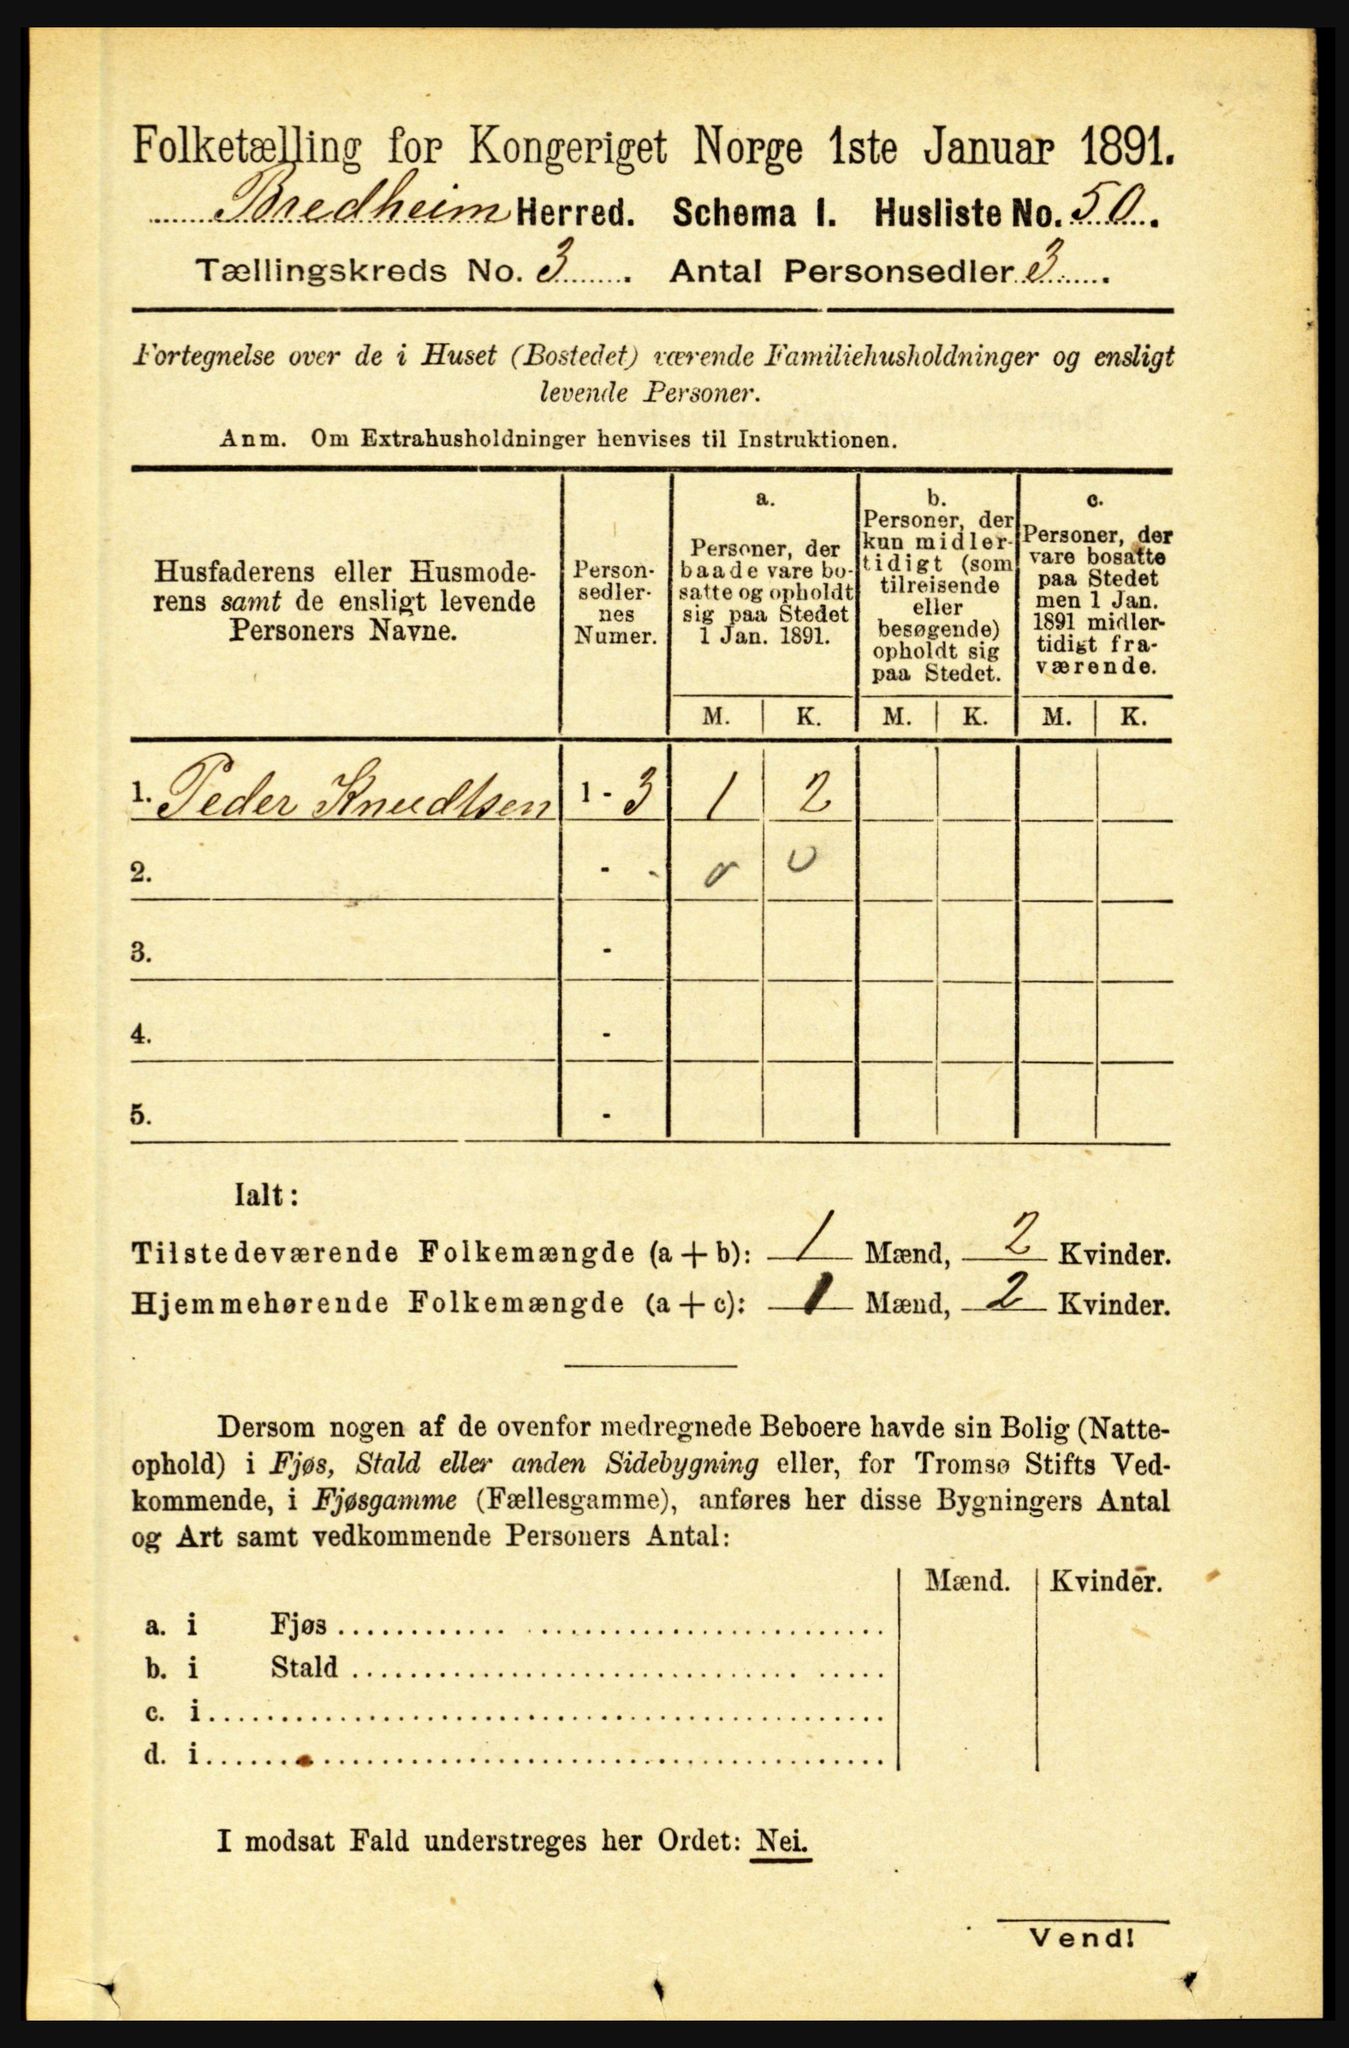 Folketælling for Kongeriget Norge 1ste Januar 1891.
Bredheim Herred. Schema I. Husliste No. 50.
Tællingskreds No. 3. Antal Personsedler 3.
Fortegnelse over de i Huset (Bostedet) værende Familiehusholdninger og ensligt
levende Personer.
Anm. Om Extrahusholdninger henvises til Instruktionen.
Husfaderens eller Husmode-
rens samt de ensligt levende
Personers Navne.
Person-
sedler-
nes
Numer.
a.
Personer, der
baade vare bo-
satte og opholdt
sig paa Stedet
1 Jan. 1891.
b.
Personer, der
kun midler-
tidigt (som
tilreisende
eller
besøgende)
opholdt sig
paa Stedet.
c.
Personer, der
vare bosatte
paa Stedet
men 1 Jan.
1891 midler-
tidigt fra-
værende.
M. K. M. K. M. K.
1. Peder Knudtsen 1 - 3 1 2
2. - 0 0
3. -
4. -
5. -
Ialt:
Tilstedeværende Folkemængde (a + b): 1 Mænd, 2 Kvinder.
Hjemmehørende Folkemængde (a + c): 1 Mænd, 2 Kvinder.
Dersom nogen af de ovenfor medregnede Beboere havde sin Bolig (Natte-
ophold) i Fjøs, Stald eller anden Sidebygning eller, for Tromsø Stifts Ved-
kommende, i Fjøsgamme (Fællesgamme), anføres her disse Bygningers Antal
og Art samt vedkommende Personers Antal:
Mænd. Kvinder.
a. i Fjøs
b. i Stald
c. i
d. i
I modsat Fald understreges her Ordet: Nei.
Vend!